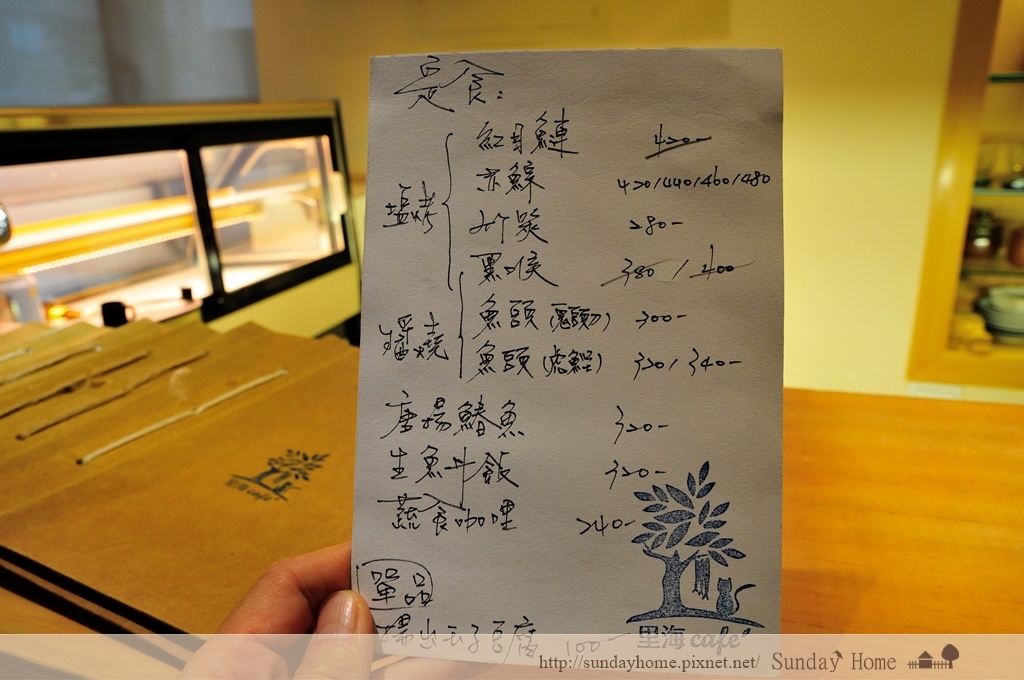 定食:
塩烤
紅目鰱 420-
赤鯮 420/440/460/480
竹筴 280-
黑喉 380/400
醬燒
魚頭() 300-
魚頭(虎鰹) 320/340-
唐揚鰆魚 320-
生魚丼飯 320-
蔬食咖哩 240-
單品
揚出玉子豆腐 100-
里海cafe'
http://sundayhome.pixnet.net/ Sunday Home